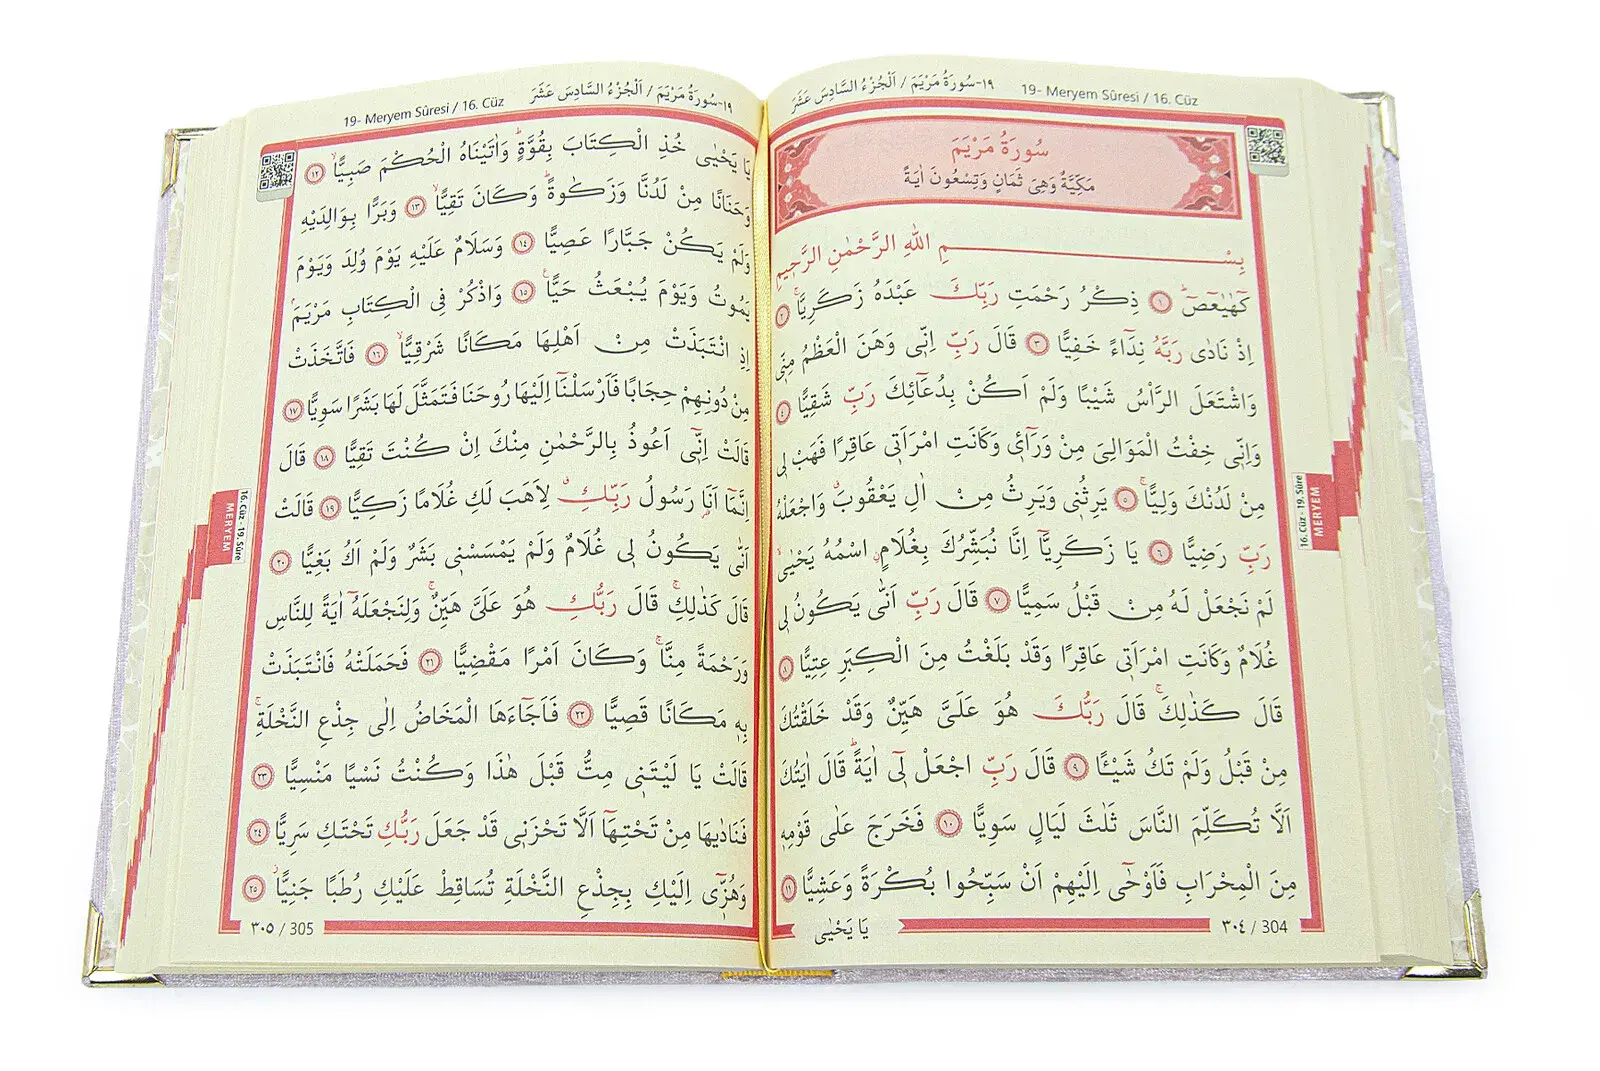 ١٩-سُورَةُ مَرْيَمَ / اَلْجُزْءُ السَّادِسَ عَشَرَ
19- Meryem Sûresi / 16. Cüz
سُورَةُ مَرْيَمَ
مَكِّيَّةٌ وَهِىَ ثَمَانٍ وَتِسْعُونَ اٰيَةً
بِسْمِ اللّٰهِ الرَّحْمٰنِ الرَّحِيمِ
كٓهٰيٰعٓصٓ ١ ذِكْرُ رَحْمَتِ رَبِّكَ عَبْدَهُ زَكَرِيَّاۚ ٢
اِذْ نَادٰى رَبَّهُ نِدَٓاءً خَفِيًّا ٣ قَالَ رَبِّ اِنّٖى وَهَنَ الْعَظْمُ مِنّٖى
وَاشْتَعَلَ الرَّأْسُ شَيْبًا وَلَمْ اَكُنْ بِدُعَٓائِكَ رَبِّ شَقِيًّا ٤
وَاِنّٖى خِفْتُ الْمَوَالِىَ مِنْ وَرَٓاءٖى وَكَانَتِ امْرَاَتٖى عَاقِرًا فَهَبْ لٖى
مِنْ لَدُنْكَ وَلِيًّاۙ ٥ يَرِثُنٖى وَيَرِثُ مِنْ اٰلِ يَعْقُوبَ وَاجْعَلْهُ
رَبِّ رَضِيًّا ٦ يَا زَكَرِيَّٓا اِنَّا نُبَشِّرُكَ بِغُلَامٍ اسْمُهُ يَحْيٰىۙ
لَمْ نَجْعَلْ لَهُ مِنْ قَبْلُ سَمِيًّا ٧ قَالَ رَبِّ اَنّٰى يَكُونُ لٖى
غُلَامٌ وَكَانَتِ امْرَاَتٖى عَاقِرًا وَقَدْ بَلَغْتُ مِنَ الْكِبَرِ عِتِيًّا ٨
قَالَ كَذٰلِكَۚ قَالَ رَبُّكَ هُوَ عَلَىَّ هَيِّنٌ وَقَدْ خَلَقْتُكَ
مِنْ قَبْلُ وَلَمْ تَكُ شَيْـًٔا ٩ قَالَ رَبِّ اجْعَلْ لٖٓى اٰيَةًؕ قَالَ اٰيَتُكَ
اَلَّا تُكَلِّمَ النَّاسَ ثَلٰثَ لَيَالٍ سَوِيًّا ١٠ فَخَرَجَ عَلٰى قَوْمِهٖ
مِنَ الْمِحْرَابِ فَاَوْحٰٓى اِلَيْهِمْ اَنْ سَبِّحُوا بُكْرَةً وَعَشِيًّا ١١
يَا يَحْيٰى
٣٠٤ / 304
16. Cüz - 19. Sûre
MERYEM
١٩-سُورَةُ مَرْيَمَ / اَلْجُزْءُ السَّادِسَ عَشَرَ
19- Meryem Sûresi / 16. Cüz
يَا يَحْيٰى خُذِ الْكِتَابَ بِقُوَّةٍؕ وَاٰتَيْنَاهُ الْحُكْمَ صَبِيًّاۙ ١٢
وَحَنَانًا مِنْ لَدُنَّا وَزَكٰوةًؕ وَكَانَ تَقِيًّاۙ ١٣ وَبَرًّا بِوَالِدَيْهِ
وَلَمْ يَكُنْ جَبَّارًا عَصِيًّا ١٤ وَسَلَامٌ عَلَيْهِ يَوْمَ وُلِدَ وَيَوْمَ
يَمُوتُ وَيَوْمَ يُبْعَثُ حَيًّاۚ ١٥ وَاذْكُرْ فِى الْكِتَابِ مَرْيَمَۢ
اِذِ انْتَبَذَتْ مِنْ اَهْلِهَا مَكَانًا شَرْقِيًّاۙ ١٦ فَاتَّخَذَتْ
مِنْ دُونِهِمْ حِجَابًا فَاَرْسَلْنَٓا اِلَيْهَا رُوحَنَا فَتَمَثَّلَ لَهَا بَشَرًا سَوِيًّا ١٧
قَالَتْ اِنّٖٓى اَعُوذُ بِالرَّحْمٰنِ مِنْكَ اِنْ كُنْتَ تَقِيًّا ١٨ قَالَ
اِنَّمَٓا اَنَا۬ رَسُولُ رَبِّكِۗ لِاَهَبَ لَكِ غُلَامًا زَكِيًّا ١٩ قَالَتْ
اَنّٰى يَكُونُ لٖى غُلَامٌ وَلَمْ يَمْسَسْنٖى بَشَرٌ وَلَمْ اَكُ بَغِيًّا ٢٠
قَالَ كَذٰلِكِۚ قَالَ رَبُّكِ هُوَ عَلَىَّ هَيِّنٌۚ وَلِنَجْعَلَهُٓ اٰيَةً لِلنَّاسِ
وَرَحْمَةً مِنَّاۚ وَكَانَ اَمْرًا مَقْضِيًّا ٢١ فَحَمَلَتْهُ فَانْتَبَذَتْ
بِهٖ مَكَانًا قَصِيًّا ٢٢ فَاَجَٓاءَهَا الْمَخَاضُ اِلٰى جِذْعِ النَّخْلَةِۚ
قَالَتْ يَا لَيْتَنٖى مِتُّ قَبْلَ هٰذَا وَكُنْتُ نَسْيًا مَنْسِيًّا ٢٣
فَنَادٰيهَا مِنْ تَحْتِهَٓا اَلَّا تَحْزَنٖى قَدْ جَعَلَ رَبُّكِ تَحْتَكِ سَرِيًّا ٢٤
وَهُزّٖٓى اِلَيْكِ بِجِذْعِ النَّخْلَةِ تُسَاقِطْ عَلَيْكِ رُطَبًا جَنِيًّاۘ ٢٥
٣٠٥ / 305
16. Cüz - 19. Sûre
MERYEM